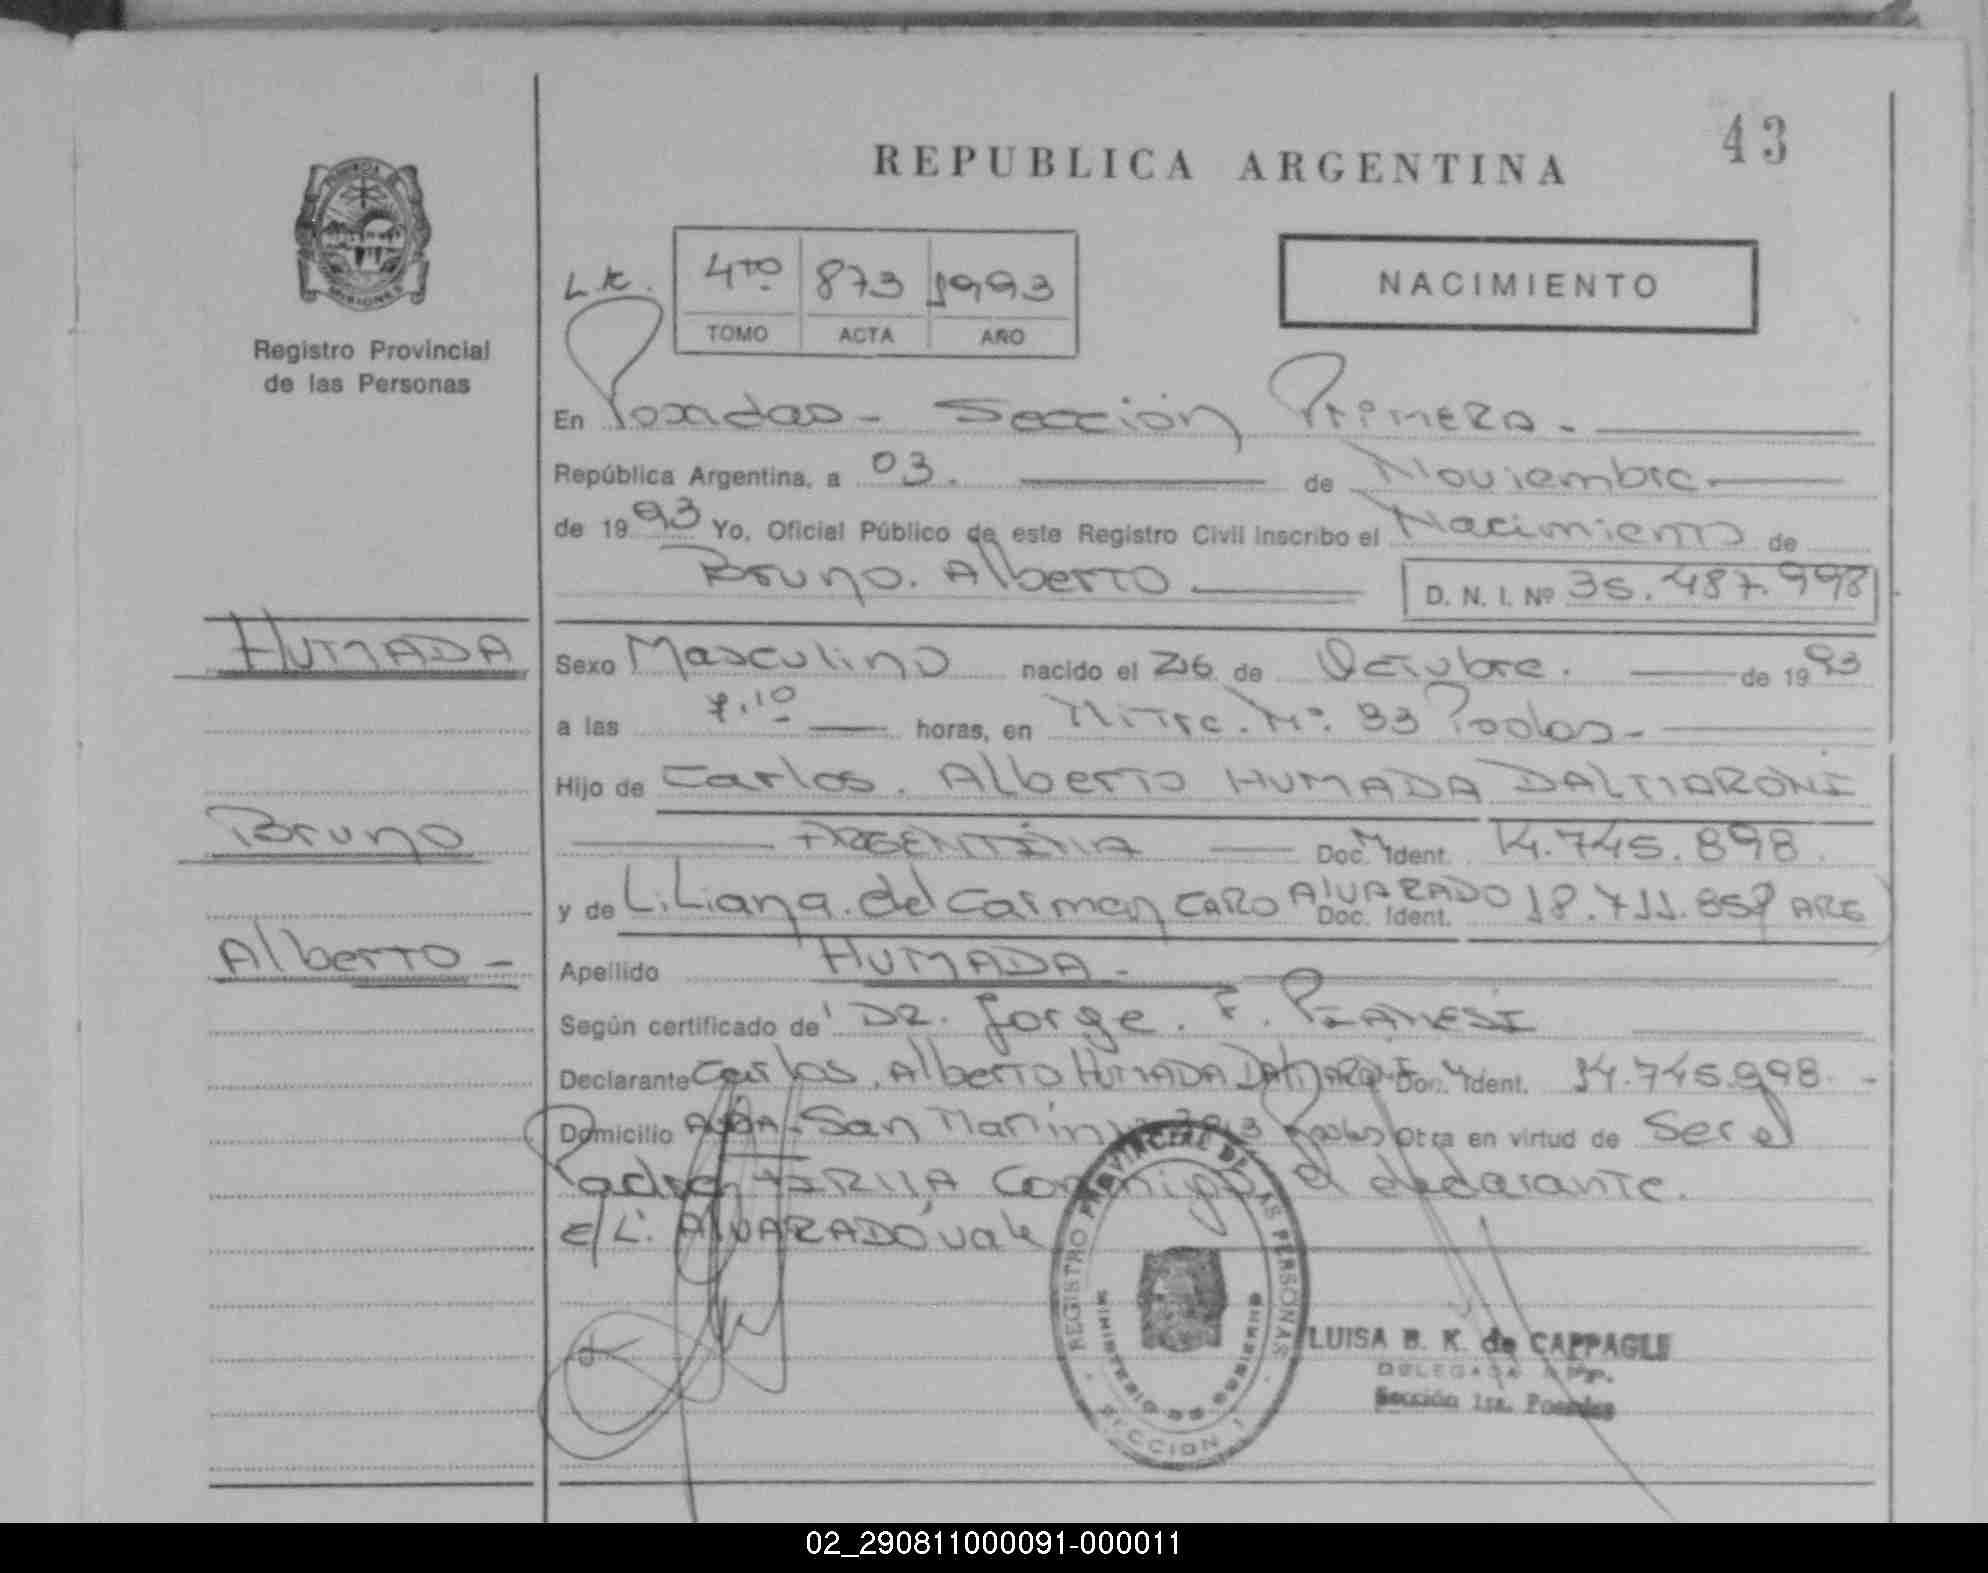 43
REPUBLICA ARGENTINA
MISIONES
Registro Provincial
de las Personas
L.K. 4to 873 1993
TOMO ACTA AÑO
NACIMIENTO
En Posadas - Sección Primera.-
República Argentina, a 03. de Noviembre
de 1993 Yo, Oficial Público de este Registro Civil inscribo el Nacimiento de
Bruno. Alberto D. N. I. Nº 35.487.998
HUMADA
Sexo Masculino nacido el 26 de Octubre. de 1993
a las 7.10 horas, en Mitre. Nº. 93 Psdas-
Hijo de Carlos. Alberto HUMADA DALMARONI
Bruno
ARGENTINA Doc. Ident. 14.745.898
y de Liliana. del Carmen CARO ALVARADO Doc. Ident. 18.711.858 ARG
Alberto -
Apellido HUMADA -
Según certificado de DR. Jorge. F. PIANESI
Declarante Carlos. Alberto HUMADA Doc. Ident. 14.745.998.-
Domicilio AVDA. San Martin otra en virtud de Ser el
Padre. FIRMA Conmigo el declarante.
E/L: ALVARADO vale
REGISTRO PROVINCIAL DE LAS PERSONAS
MINISTERIO DE GOBIERNO
SECCION 1
LUISA B. K. de CAPPAGLI
DELEGADA R.P.P.
Sección 1ra. Posadas
02_290811000091-000011